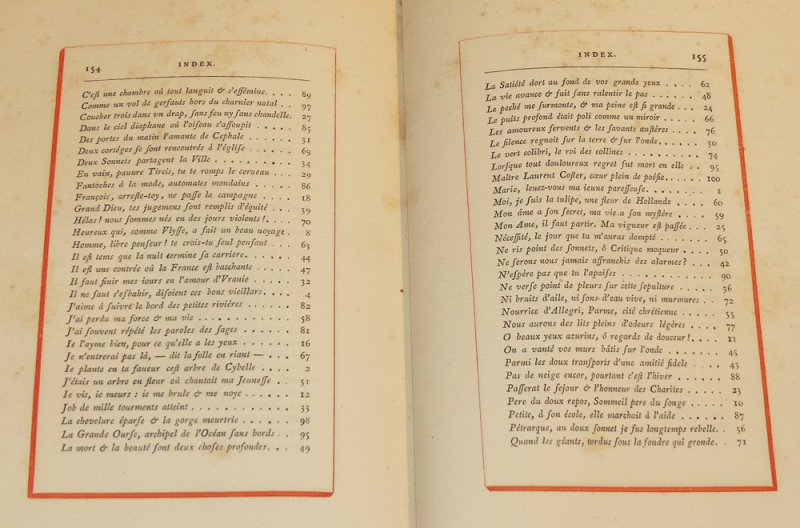 154
INDEX.
C'eſt une chambre où tout languit & s'eſſémine. . . . 89
Comme un vol de gerfauts hors du charnier natal . . 97
Coucher trois dans vn drap, ſans feu ny ſans chandelle. 27
Dans le ciel diaphane où l'oiſeau s'aſſoupit . . . . . 85
Des portes du matin l'amante de Cephale . . . . . . 31
Deux cortéges ſe ſont rencontrés à l'égliſe . . . . . . 69
Deux Sonnets partagent la Ville . . . . . . . . . . 54
En vain, pauure Tirois, tu te romps le cerueau . . . 29
Fantoches à la mode, automates mondains . . . . . 86
François, arreſte-toy, ne paſſe la campagne . . . . 18
Grand Dieu, tes jugemens ſont remplis d'équité . . . 39
Hélas! nous ſommes nés en des jours violents!. . . . 70
Heureux qui, comme Vlyſſe, a fait un beau uoyage . 8
Homme, libre penſeur! te crois-tu ſeul penſant . . . 63
Il eſt tems que la nuit termine ſa carriere. . . . . . 44
Il eſt une contrée où la France eſt bacchante . . . . . 47
Il faut finir mes iours en l'amour d'Vranie . . . . . 32
Il ne faut s'eſbahir, diſoient ces bons vieillars. . . . 4
J'aime à ſuivre le bord des petites rivières . . . . . . 82
J'ai perdu ma force & ma vie . . . . . . . . . . . 58
J'ai ſouvent répété les paroles des ſages . . . . . . 81
Ie l'ayme bien, pour ce qu'elle a les yeux . . . . . . 16
Je n'entrerai pas là, — dit la folle en riant — . . . 67
Ie plante en ta faueur ceſt arbre de Cybelle . . . . 2
J'étais un arbre en fleur où chantait ma Jeuneſſe . . 51
Ie vis, ie meurs : ie me brule & me noye . . . . . . 12
Job de mille tourments atteint . . . . . . . . . . . 33
La chevelure éparſe & la gorge meurtrie . . . . . . 98
La Grande Ourſe, archipel de l'Océan ſans bords . . 95
La mort & la beauté ſont deux choſes profondes. . . 49
INDEX.
155
La Satiété dort au fond de vos grands yeux . . . . 62
La vie avance & fuit ſans ralentir le pas . . . . . . 48
Le peché me ſurmonte, & ma peine eſt ſi grande . . . 24
Le puits profond était poli comme un miroir . . . . . 66
Les amoureux fervents & les ſavants auſtères . . . . 76
Le ſilence regnoit ſur la terre & ſur l'onde. . . . . . 30
Le vert colibri, le roi des collines . . . . . . . . . 74
Lorſque tout douloureux regret fut mort en elle . . 95
Maître Laurent Coſter, cœur plein de poëſie. . . . . . 100
Marie, leuez-vous ma ieune pareſſeuſe. . . . . . . . 1
Moi, je ſuis la tulipe, une fleur de Hollande . . . . 60
Mon âme a ſon ſecret, ma vie a ſon myſtère . . . . 59
Mon Ame, il faut partir. Ma vigueur eſt paſſée . . . 25
Néceſſité, le jour que tu m'auras dompté . . . . . . 65
Ne ris point des ſonnets, ô Critique moqueur . . . . 50
Ne ſerons nous jamais aſſranchis des alarmes? . . . 42
N'eſpère pas que tu l'apaiſes . . . . . . . . . . . . 90
Ne verſe point de pleurs ſur cette ſepulture . . . . . 36
Ni bruits d'aile, ni ſons d'eau vive, ni murmures . . 72
Nourrice d'Allegri, Parme, cité chrétienne . . . . . 55
Nous aurons des lits pleins d'odeurs légères . . . . 77
O beaux yeux azurins, ô regards de douceur!. . . . 11
On a vanté vos murs bâtis ſur l'onde . . . . . . . . 45
Parmi les doux tranſports d'une amitié fidele . . . . 43
Pas de neige encor, pourtant c'eſt l'hiver . . . . . . 88
Paſſerat le ſejour & l'honneur des Charites . . . . . 23
Pere du doux repos, Sommeil pere du ſonge . . . . . 10
Petite, à ſon école, elle marchait à l'aide . . . . . . 87
Pétrarque, au doux ſonnet je fus longtemps rebelle. . 56
Quand les géants, tordus ſous la foudre qui gronde. . 71